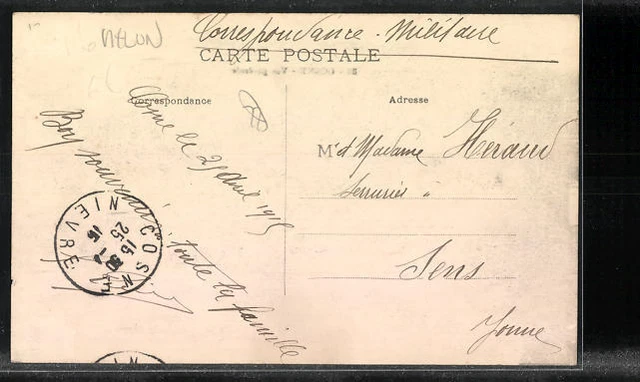 MELUN
Correspondance - Militaire
CARTE POSTALE
Correspondance
Adresse
Cosne le 25 Avril 1915
Bon souvenir à toute la famille
M et Madame Héraud
Serrurier
Sens
Yonne
COSNE
NIEVRE
15 30
25 - 4
15